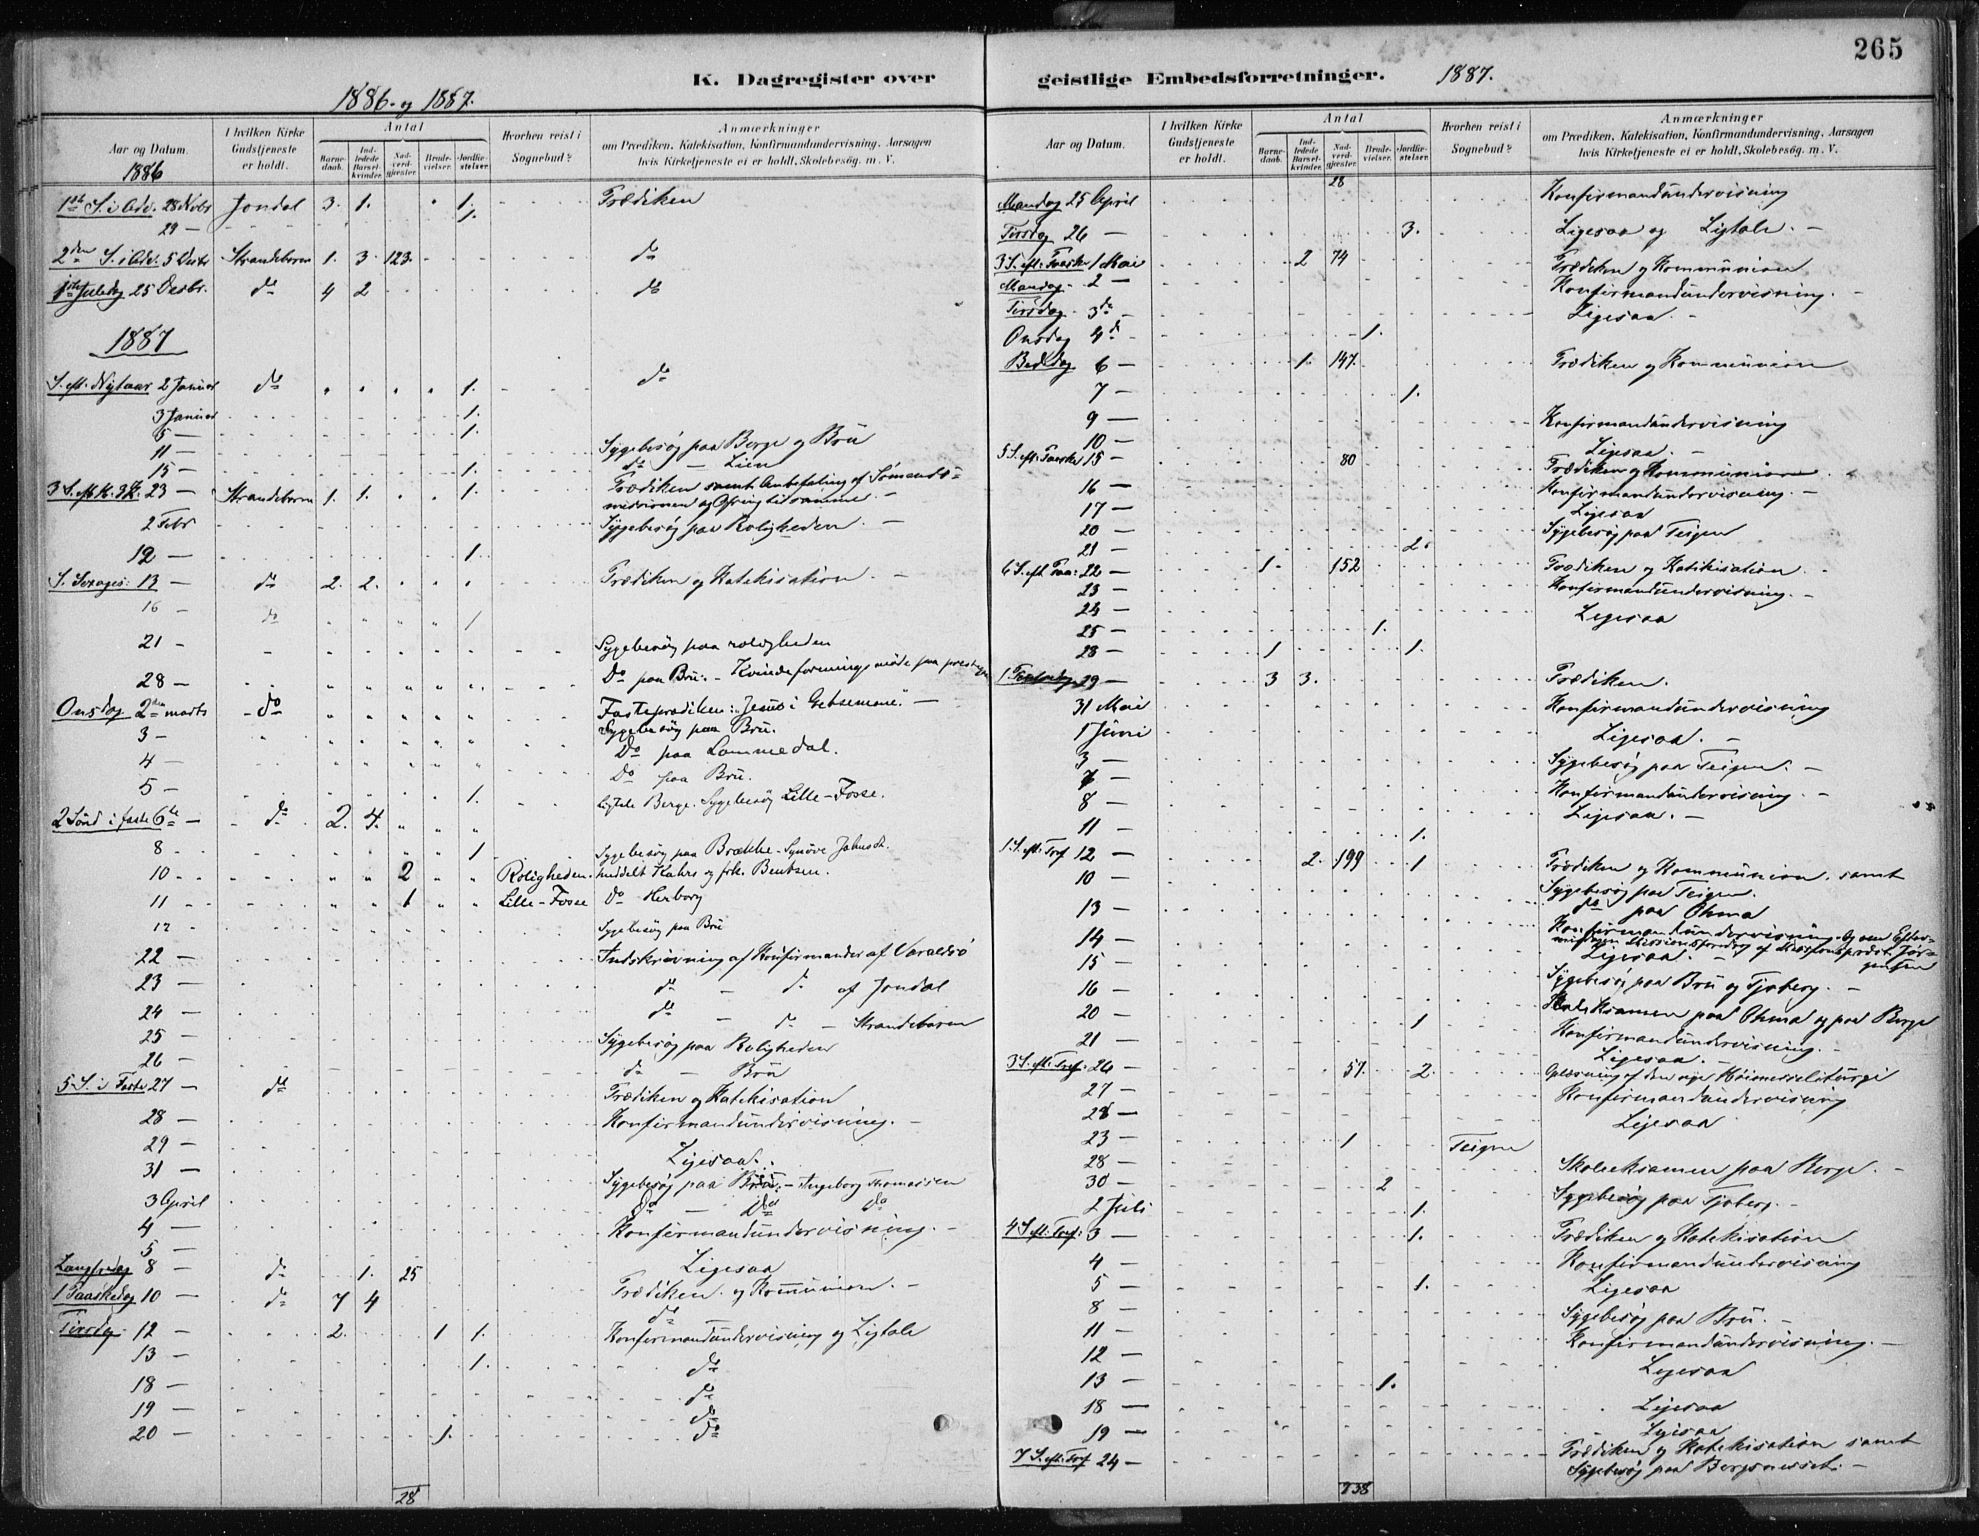 265
K. Dagregister over geistlige Embedsforretninger. 1887.
1886. og 1887.
Aar og Datum.
I hvilken Kirke Gudstjeneste er holdt.
Antal
Barnedaab.
Indledede Barselkvinder.
Nadverdgjæster.
Brudevielser.
Jordfæstelser.
Hvorhen reist i Sognebud?
Anmærkninger
om Prædiken, Katekisation, Konfirmandundervisning, Aarsagen
hvis Kirketjeneste ei er holdt, Skolebesøg. m. V.
1886
1ste S. i Adv. 28 Novbr Jondal 3. 1. 1. Prædiken
29 — 1.
2den S. i Adv. 5 Decbr Strandebarm 1. 3 123. do
1ste Juledag 25 Decbr. do 4 2 do
1887
S. eft. Nytaar 2 Januar do 1. do
3 Januar 1.
5 — 1.
11 — Sygebesøg paa Berge og Bru
15 — 1. do — Lien
3 S. eft. H. 3 K. 23 — Strandebarm 1. 1. 1. Prædiken samt Anbefaling af Sømands-
missionen og Ofring til samme —
2 Febr Sygebesøg paa Roligheden —
12 — 1.
S. Sexages: 13 — do 2. 2. Prædiken og Katekisation —
16 — do 1
21 — Sygebesøg paa roligheden
28 — Do paa Bru. — Kvindeforenings møde paa
Onsdag 2den marts do Fasteprædiken: "Jesus i Getsemane". —
3 — Sygebesøg paa Bru.
4 — Do paa Lommedal.
5 — 1. Do paa Bru.
Ligtale Berge. Sygebesøg Lille-Fosse.
2 Sønd i faste 6te — do 2. 4.
8 — 1 Sygebesøg paa Brække — Synøve
10 — 2 Roligheden. meddelt Kahrs og frk. Bentsen.
11 — 1 Lille-Fosse Do Herborg
12 — Sygebesøg paa Bru
22 — Indskrivning af Konfirmander af Varaldsø
23 do — do af Jondal
24 — do — do — Strandebarm
25 — Sygebesøg paa Roligheden
26 — do — Bru
5 S. i Faste 27 — do Prædiken og Katekisation
28 — Konfirmandundervisning. —
29 — Ligesaa.
31 — Sygebesøg paa Bru: — Ingeborg Thomassen
3 April do — do do
4 — Konfirmandundervisning. —
5 — Ligesaa
Langfredag 8 — do 1. 25 Prædiken og Kommunion. —
1 Paaskedag 10 — do 7 4 do
Tirsdag 12 — 2. 1 1. Konfirmandundervisning og Ligtale
13 — 1. do
18 — do
19 — do
20 — 1. do
28
Aar og Datum.
I hvilken Kirke Gudstjeneste er holdt.
Antal
Barnedaab.
Indledede Barselkvinder.
Nadverdgjæster.
Brudevielser.
Jordfæstelser.
Hvorhen reist i Sognebud?
Anmærkninger
om Prædiken, Katekisation, Konfirmandundervisning, Aarsagen
hvis Kirketjeneste ei er holdt, Skolebesøg. m. V.
28
Mandag 25 April Konfirmandundervisning
Tirsdag 26 — 3. Ligesaa og Ligtale. —
3 S. eft. Paaske 1 Mai 2 74 Prædiken og Kommunion
Mandag 2 — Konfirmandundervisning. —
Tirsdag 3de — Ligesaa. —
Onsdag 4de 1.
Bededag 6 — 1. 147. Prædiken og Kommunion
7 — 1.
9 — Konfirmandundervisning
10 — Ligesaa. —
5 S. eft. Paaske 15 — 80 Prædiken og Kommunion
16 — Konfirmandundervisning. —
17 — Ligesaa
20 — Sygebesøg paa Teigen
21 — 2.
6 S. eft. Paa: 22 — 1. 152 Prædiken og Katikisation. —
23 — Konfirmandundervisning. —
24 — Ligesaa
25 — 1.
28 — 1 1.
1 Pintsedag 29 — 3 3. Prædiken.
31 Mai Konfirmandundervisning
1 Juni Ligesaa. —
3 — Sygebesøg paa Teigen. —
7 — Konfirmandundervisning. —
8 — Ligesaa. —
11 — 1.
1. S. eft. Tref 12 — 2. 199 1 Prædiken og Kommunion. samt
10 — Sygebesøg paa Teigen.
13 — do paa Ohma
14 — Konfirmandundervisning. Og om Efter-
middagen Missionsforedrag af Missionsprest Jør-
gensen
15 — Ligesaa. —
16 — Sygebesøg paa Bru og Tjoberg. —
20 — 1 Skoleeksamen paa Ohma og paa Berge
21 — Konfirmandundervisning. —
Ligesaa. —
3 S. eft. Tref. 26 — 57. 2. Oplæsning af den nye Høimesseliturgi
27 — Konfirmandundervisning
28 — Ligesaa
23 — 1 Teigen
28 — Skoleeksamen paa Berge. —
30 — 2 Sygebesøg paa Tjoberg. —
2 Juli 1.
4 S. eft. Tref: 3 — 1. Prædiken og Katekisation
4 — Konfirmandundervisning
5 — 1. Ligesaa
8 — Sygebesøg paa Bru. —
11 — Konfirmandundervisning. —
12 — Ligesaa
13 — 1.
18 — Ligesaa
19 — Ligesaa
7 S. eft. Tref 24 — Prædiken og Katekisation samt
Sygebesøg paa Bergsnesset. —
738